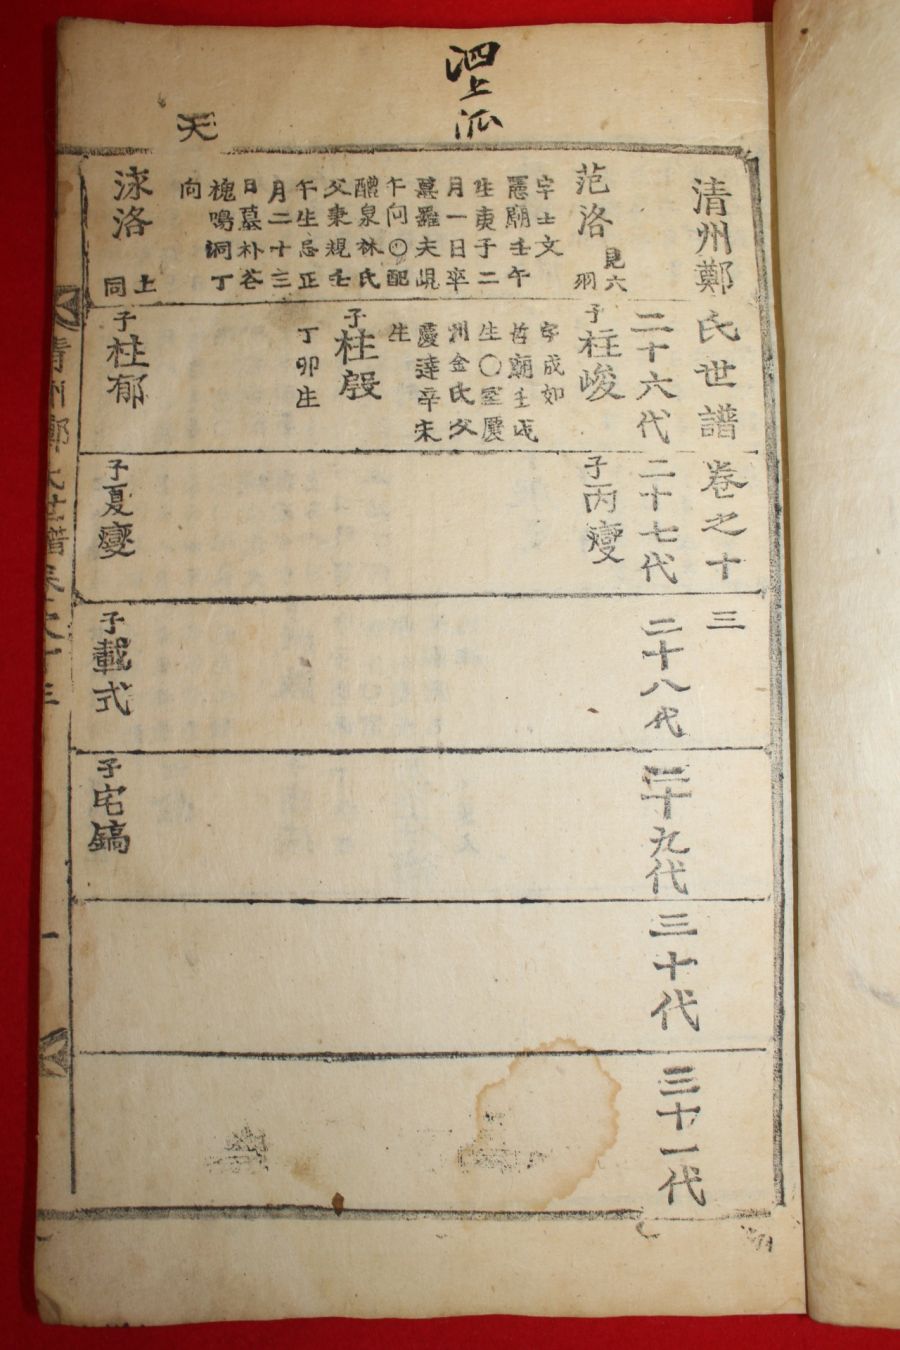 泗上派
天
清州鄭氏世譜卷之十三
二十六代
二十七代
二十八代
二十九代
三十代
三十一代
范洛
見六
羽
字士文
憲廟壬午
生庚子二
月一日卒
墓羅夫峴
午向〇配
醴泉林氏
父秉規壬
午生忌正
月二十三
日墓朴谷
槐鳴洞丁
向
洙洛
上
同
子柱峻
字成如
哲廟壬戌
生〇室慶
州金氏父
慶達辛未
生
子柱殷
丁卯生
子柱郁
子丙燮
子夏燮
子載式
子宅鎬
清州鄭氏世譜卷之十三
一